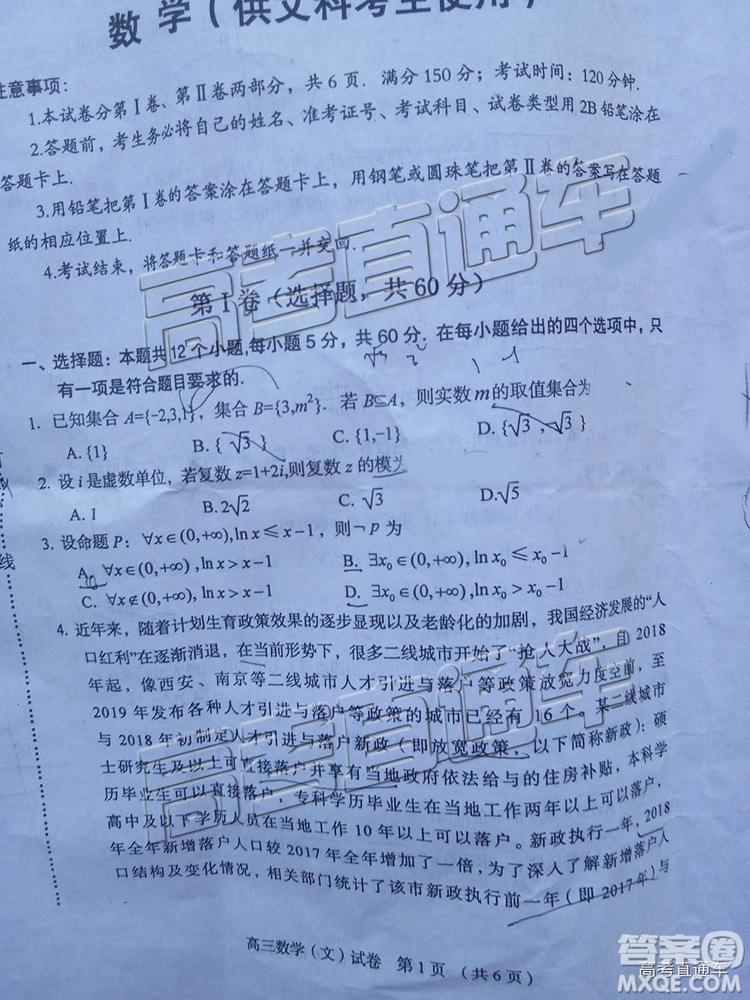 数 学（供文科考生使用）
注意事项：
1.本试卷分第Ⅰ卷、第Ⅱ卷两部分，共6页．满分150分；考试时间：120分钟．
2.答题前，考生务必将自己的姓名、准考证号、考试科目、试卷类型用2B铅笔涂在
答题卡上．
3.用铅笔把第Ⅰ卷的答案涂在答题卡上，用钢笔或圆珠笔把第Ⅱ卷的答案写在答题
纸的相应位置上．
4.考试结束，将答题卡和答题纸一并交回．
高考直通车
第Ⅰ卷（选择题，共60分）
一、选择题：本题共12个小题,每小题5分，共60分．在每小题给出的四个选项中，只
有一项是符合题目要求的．
1. 已知集合A={-2,3,1}，集合B={3,m²}．若B⊆A，则实数m的取值集合为
A. {1} B. {√3} C. {1,-1} D. {√3,-√3}
2. 设i是虚数单位，若复数z=1+2i,则复数z的模为
A. 1 B. 2√2 C. √3 D. √5
3. 设命题P：∀x∈(0,+∞),ln x≤x-1，则¬p为
A. ∀x∈(0,+∞),ln x>x-1 B. ∃x₀∈(0,+∞),ln x₀≤x₀-1
C. ∀x∉(0,+∞),ln x>x-1 D. ∃x₀∈(0,+∞),ln x₀>x₀-1
线
4. 近年来，随着计划生育政策效果的逐步显现以及老龄化的加剧，我国经济发展的“人
口红利”在逐渐消退，在当前形势下，很多二线城市开始了“抢人大战”，自2018
年起，像西安、南京等二线城市人才引进与落户等政策放宽力度空前，至
2019年发布各种人才引进与落户等政策的城市已经有16个．某二线城市
与2018年初制定人才引进与落户新政（即放宽政策，以下简称新政）：硕
士研究生及以上可直接落户并享有当地政府依法给与的住房补贴，本科学
历毕业生可以直接落户，专科学历毕业生在当地工作两年以上可以落户，
高中及以下学历人员在当地工作10年以上可以落户。新政执行一年，2018
年全年新增落户人口较2017年全年增加了一倍，为了深入了解新增落户人
口结构及变化情况，相关部门统计了该市新政执行前一年（即2017年）与
高考直通车
高三数学（文）试卷 第1页 （共6页）
答案圈
高考直通车
MXQE.COM